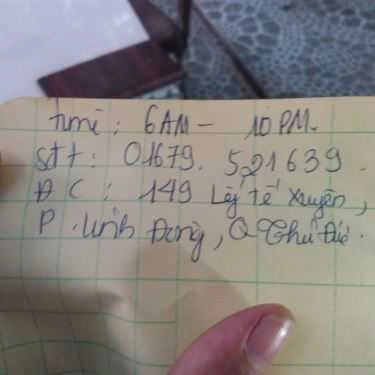 time: 6AM - 10PM.
sđt: 01679. 521639.
ĐC: 149 Lý Tế Xuyên,
P. Linh Đông, Q Thủ Đức.